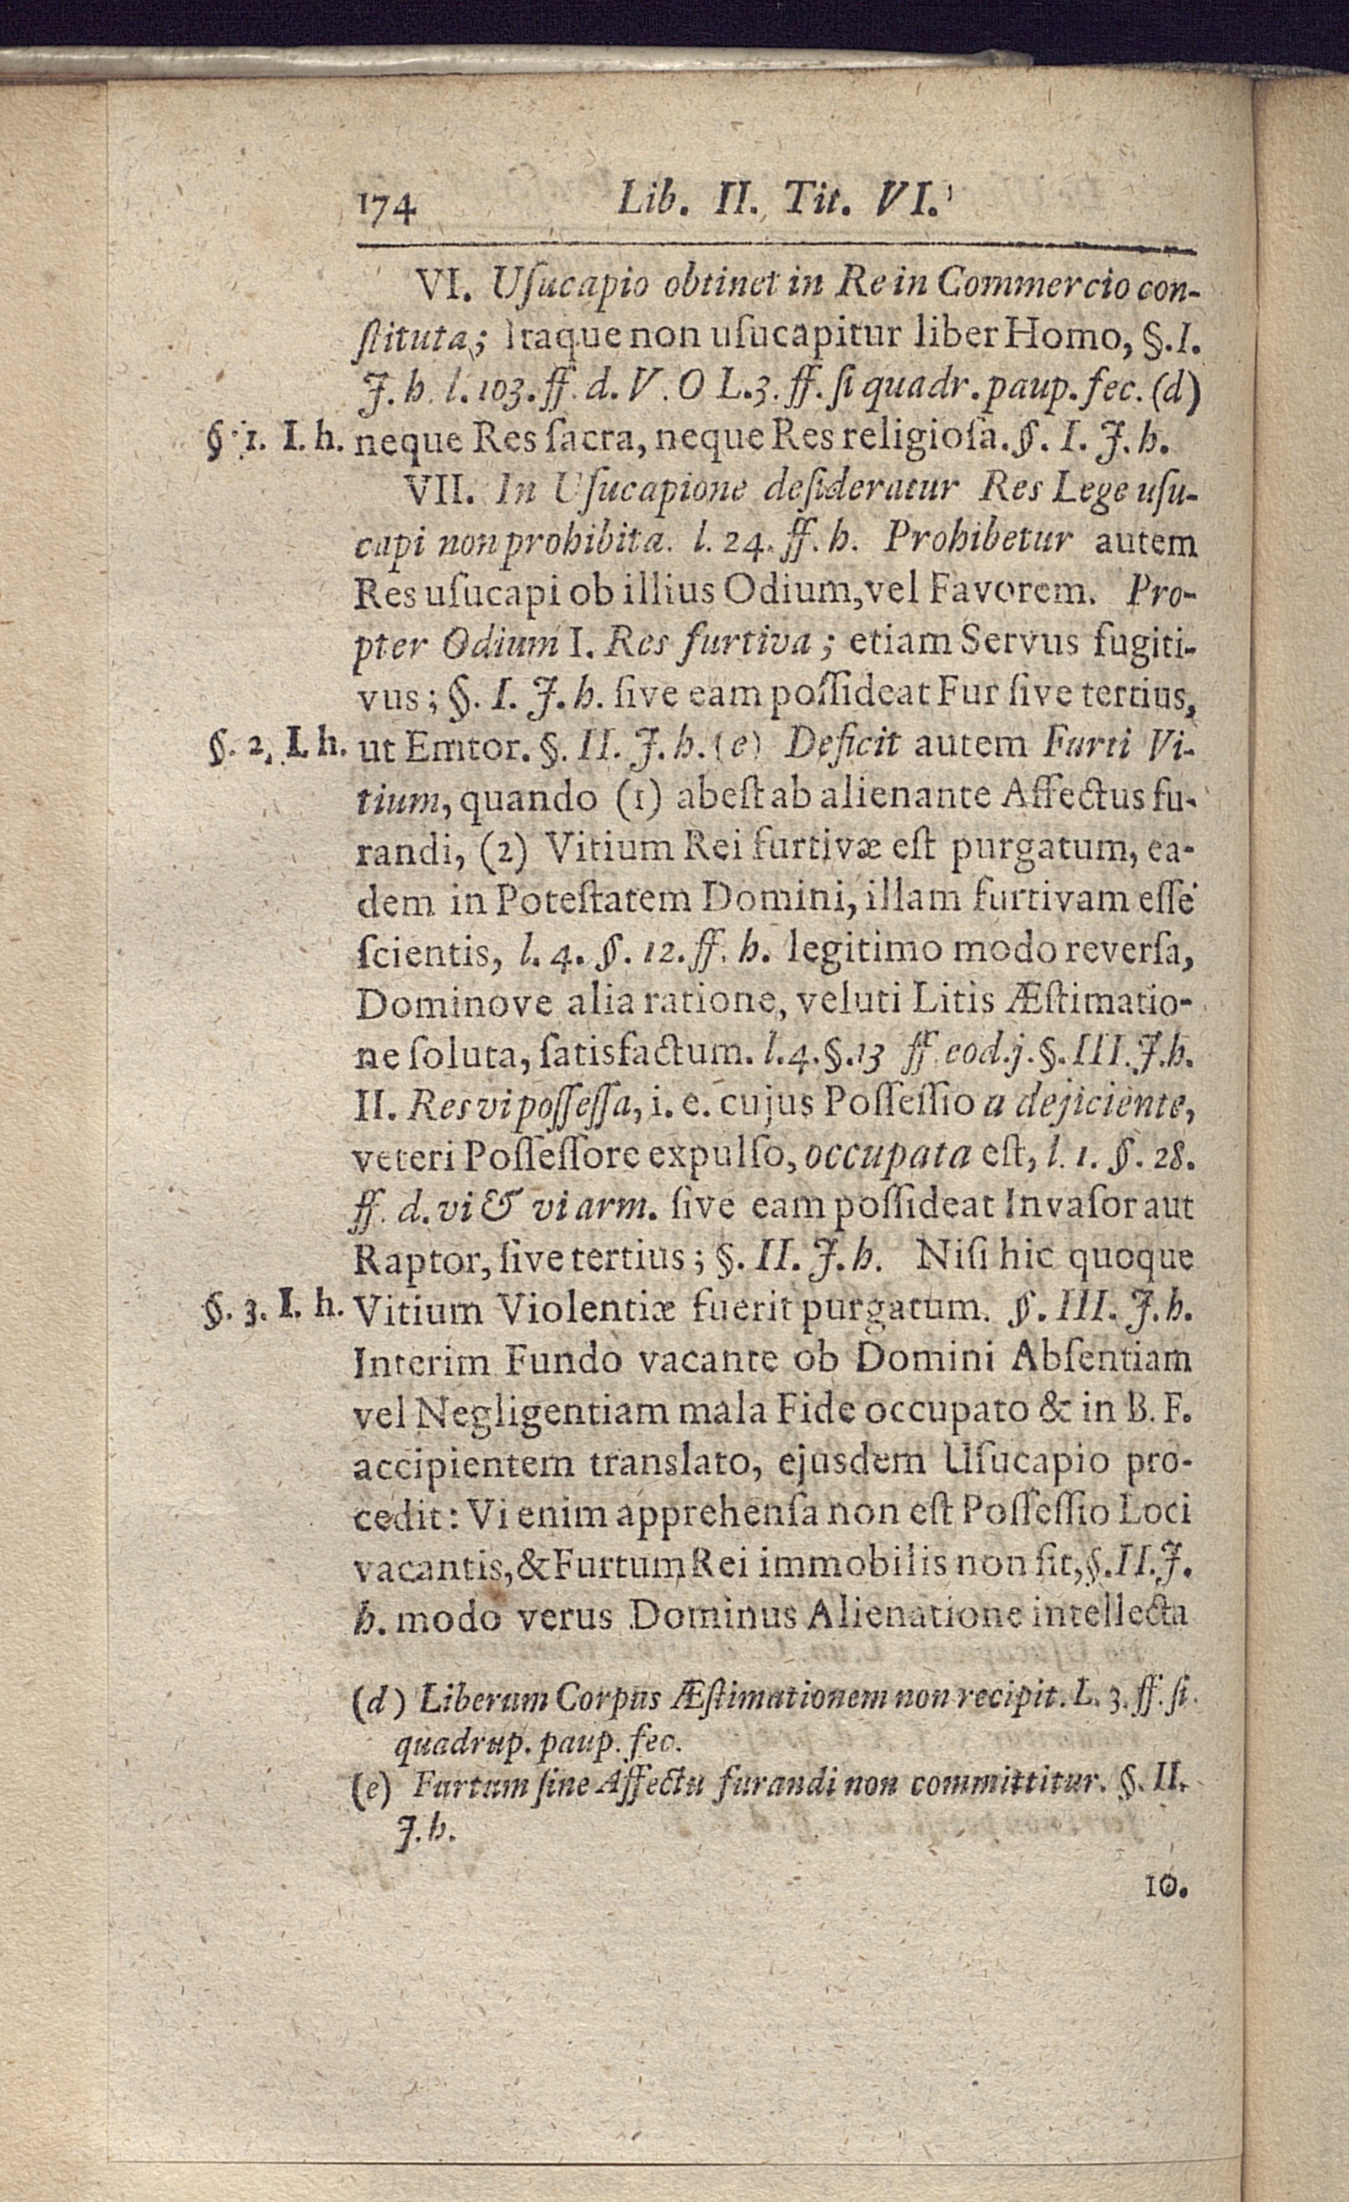 174 Lib. II. Tit. VI.
VI. Uſucapio obtinet in Re in Commercio con-
ſtituta; Itaque non uſucapitur liber Homo, §. I.
J. h. l. 103. ff. d. V. O L. 3. ff. ſi quadr. paup. fec. (d)
§ 1. I. h. neque Res ſacra, neque Res religioſa. §. I. J. h.
VII. In Uſucapione deſideratur Res Lege uſu-
capi non prohibita. l. 24. ff. h. Prohibetur autem
Res uſucapi ob illius Odium, vel Favorem. Pro-
pter Odium I. Res furtiva; etiam Servus fugiti-
vus; §. I. J. h. ſive eam poſſideat Fur ſive tertius,
§. 2. I. h. ut Emtor. §. II. J. h. (e) Deficit autem Furti Vi-
tium, quando (1) abeſt ab alienante Affectus fu-
randi, (2) Vitium Rei furtivæ eſt purgatum, ea-
dem in Poteſtatem Domini, illam furtivam eſſe
ſcientis, l. 4. §. 12. ff. h. legitimo modo reverſa,
Dominove alia ratione, veluti Litis Æſtimatio-
ne ſoluta, ſatisfactum. l. 4. §. 13 ff. eod. j. §. III. J. h.
II. Res vi poſſeſſa, i. e. cujus Poſſeſſio a dejiciente,
veteri Poſſeſſore expulſo, occupata eſt, l. 1. §. 28.
ff. d. vi & vi arm. ſive eam poſſideat Invaſor aut
Raptor, ſive tertius; §. II. J. h. Niſi hic quoque
§. 3. I. h. Vitium Violentiæ fuerit purgatum. §. III. J. h.
Interim Fundo vacante ob Domini Abſentiam
vel Negligentiam mala Fide occupato & in B. F.
accipientem translato, ejusdem Uſucapio pro-
cedit: Vi enim apprehenſa non eſt Poſſeſſio Loci
vacantis, & Furtum Rei immobilis non fit, §. II. J.
h. modo verus Dominus Alienatione intellecta
(d) Liberum Corpus Æſtimationem non recipit. L. 3. ff. ſi
quadrup. paup. fec.
(e) Furtum ſine Affectu furandi non committitur. §. II.
J. h.
10.